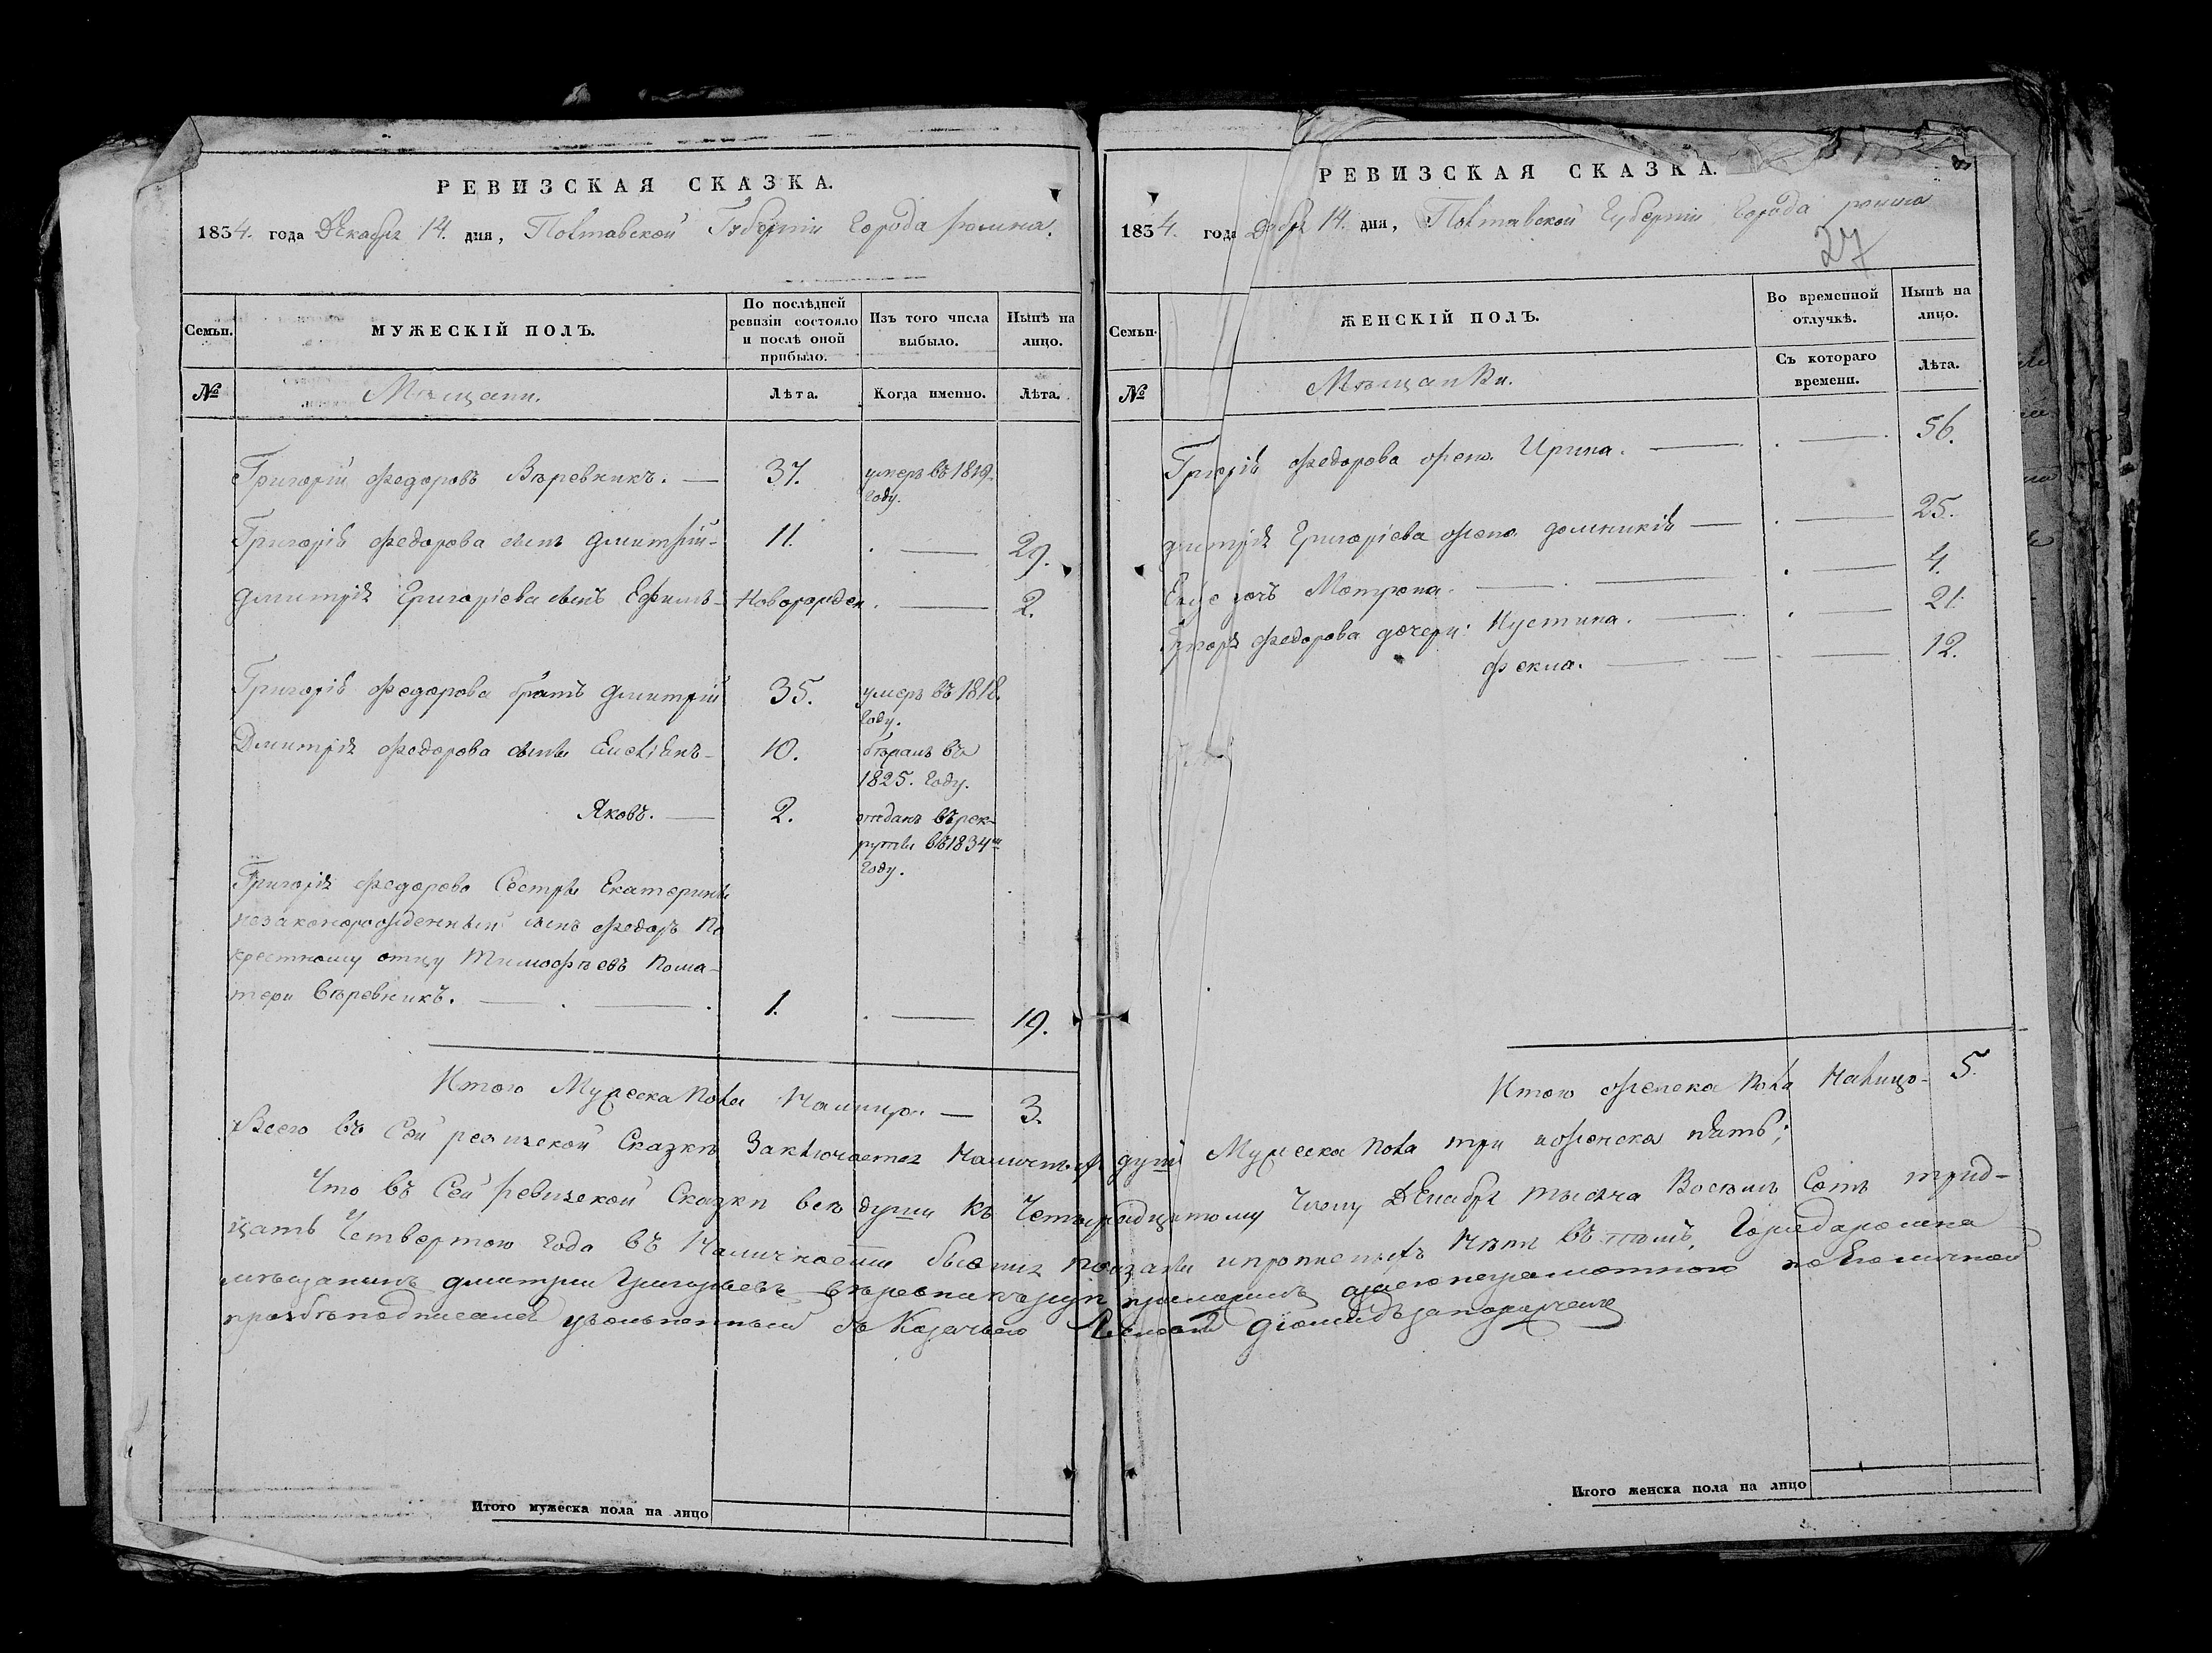 РЕВИЗСКАЯ СКАЗКА.
1834. года Декабря 14. дня, Полтавской Губерніи города ромна.
Семьи.
МУЖЕСКІЙ ПОЛЪ.
По послѣдней ревизіи состояло и послѣ оной прибыло.
Изъ того числа выбыло.
Нынѣ на лицо.
№
Мѣщани.
Лѣта.
Когда именно.
Лѣта.
Григорій Федоровъ Вѣревкикъ. — 37. умеръ въ 1819.
году.
Григорія Федорова сынъ Дмитрій — 11. . — 29.
Дмитрія Григоріева сынъ Ефимъ — Новорожден . — 2.
Григорія Федорова братъ Дмитрій 35. умеръ въ 1818.
году.
Дмитрія Федорова сыны Емеліянъ — 10. бѣжалъ въ
1825. году.
Яковъ. — 2. отданъ въ рек-
руты въ 1834м
году.
Григорія Федорова Сестры Екатерины
незаконорожденный сынъ Федоръ по
крестному отцу Тимофѣевъ пома-
тери Вѣревкикъ. — . — . 1. . — 19.
Итого Мужеска пола Налицо — 3.
РЕВИЗСКАЯ СКАЗКА.
1834. года Декбр 14. дня, Полтавской Губерніи Города ромна
27
Семьи.
ЖЕНСКІЙ ПОЛЪ.
Во временной отлучкѣ.
Нынѣ на лицо.
№
Мѣщанки.
Съ котораго времени.
Лѣта.
Григорія Федорова жена Ирина. — . — . 56.
Дмитрія Григоріева жена домникія — . — 25.
Его же дочь Мотрона. — . — . — 4.
Григорія Федорова дочери: Иустина. — . — 21.
Фекла. — 12.
Итого Женска пола Налицо — 5.
Всего въ Сей ревизской Сказкѣ Заключается Наличныхъ душъ Мужеска пола три и женска пять;
Что въ Сей ревизской Сказки всѣ души къ Четырнадцатому числу Декабря тысяча Восемь Сотъ трид-
цать Четвертого года въ Наличности бывшия показаны и прописныхъ нѣтъ въ томъ, Города ромна
мѣщанинъ Дмитрій Григорьевъ Вѣревкикъ руку приложилъ а за его неграмотною по Его личной
прозбѣ подписался уволненный съ Казачьего